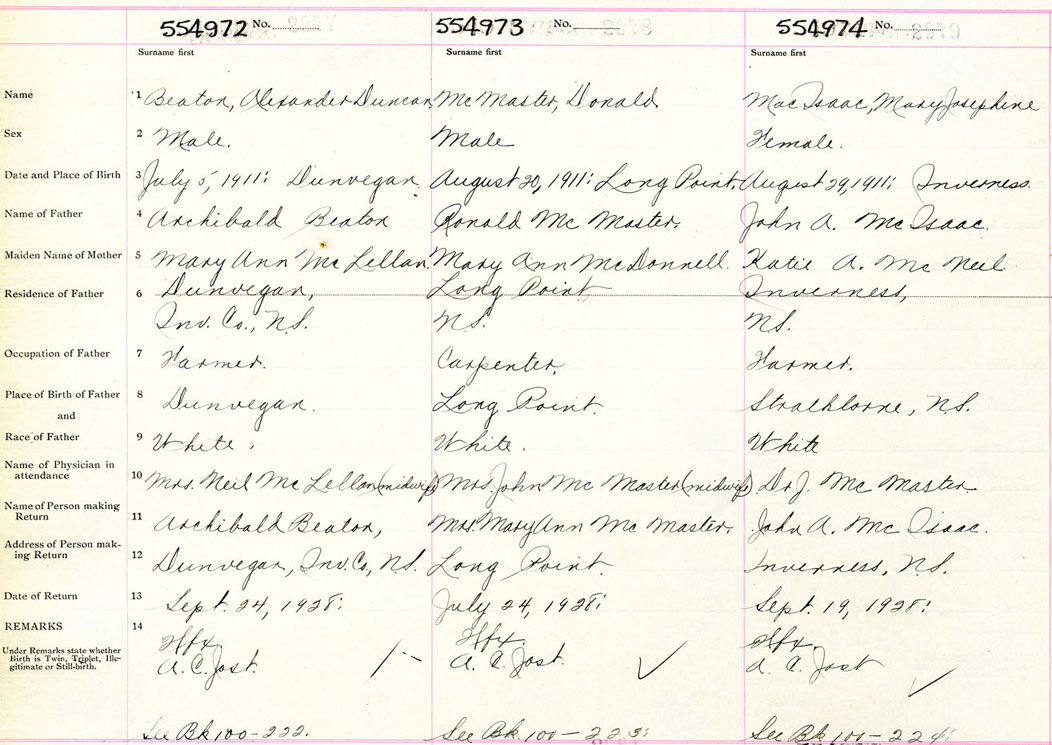 554972 No. 2977 554973 No. 2978 554974 No. 2979
Surname first Surname first Surname first
Name 1 Beaton, Alexander Duncan McMaster, Donald MacIsaac, Mary Josephine
Sex 2 Male. Male Female.
Date and Place of Birth 3 July 5, 1911: Dunvegan. August 20, 1911: Long Point. August 29, 1911: Inverness.
Name of Father 4 Archibald Beaton Ronald McMaster. John A. McIsaac.
Maiden Name of Mother 5 Mary Ann McLellan. Mary Ann McDonnell. Katie A. McNeil
Residence of Father 6 Dunvegan, Long Point, Inverness,
Inv. Co., N.S. N.S. N.S.
Occupation of Father 7 Farmer. Carpenter. Farmer.
Place of Birth of Father 8 Dunvegan. Long Point. Strathlorne, N.S.
and
Race of Father 9 White. White. White
Name of Physician in
attendance 10 Mrs. Neil McLellan (midwife) Mrs. John McMaster (midwife). Dr J. McMaster
Name of Person making
Return 11 Archibald Beaton, Mrs. Mary Ann McMaster. John A. McIsaac.
Address of Person mak-
ing Return 12 Dunvegan, Inv. Co, N.S. Long Point. Inverness, N.S.
Date of Return 13 Sept. 24, 1928: July 24, 1928: Sept. 19, 1928:
REMARKS 14 Hfx. Hfx. Hfx.
Under Remarks state whether
Birth is Twin, Triplet, Ille-
gitimate or Still-birth.
A. C. Jost. A. C. Jost. A. C. Jost
See Bk 100-222. See Bk. 100-223: See Bk 100-224: